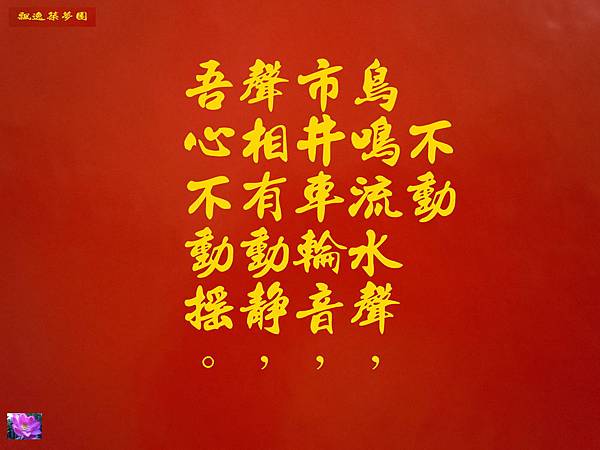 飄逸築夢園
不動
鳥鳴流水聲，
市井車輪音，
聲相有動靜，
吾心不動搖。